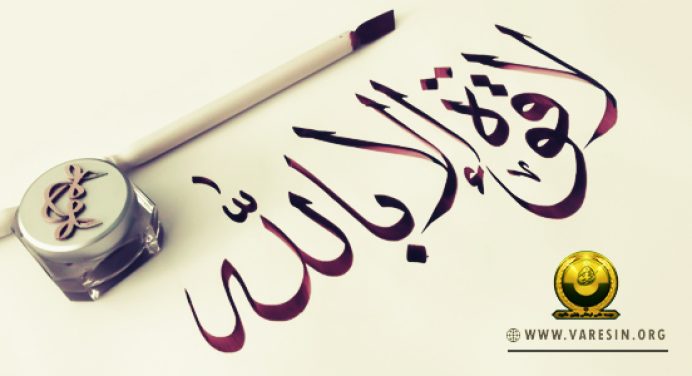 لا قوة إلا بالله
WWW.VARESIN.ORG